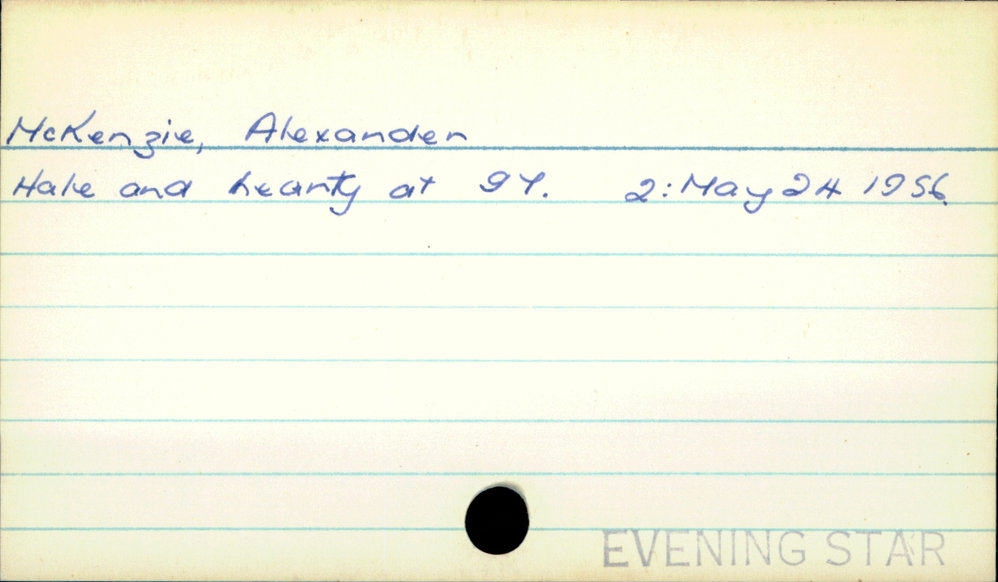 McKenzie, Alexander
Hale and hearty at 94. 2: May 24 1956.
EVENING STAR